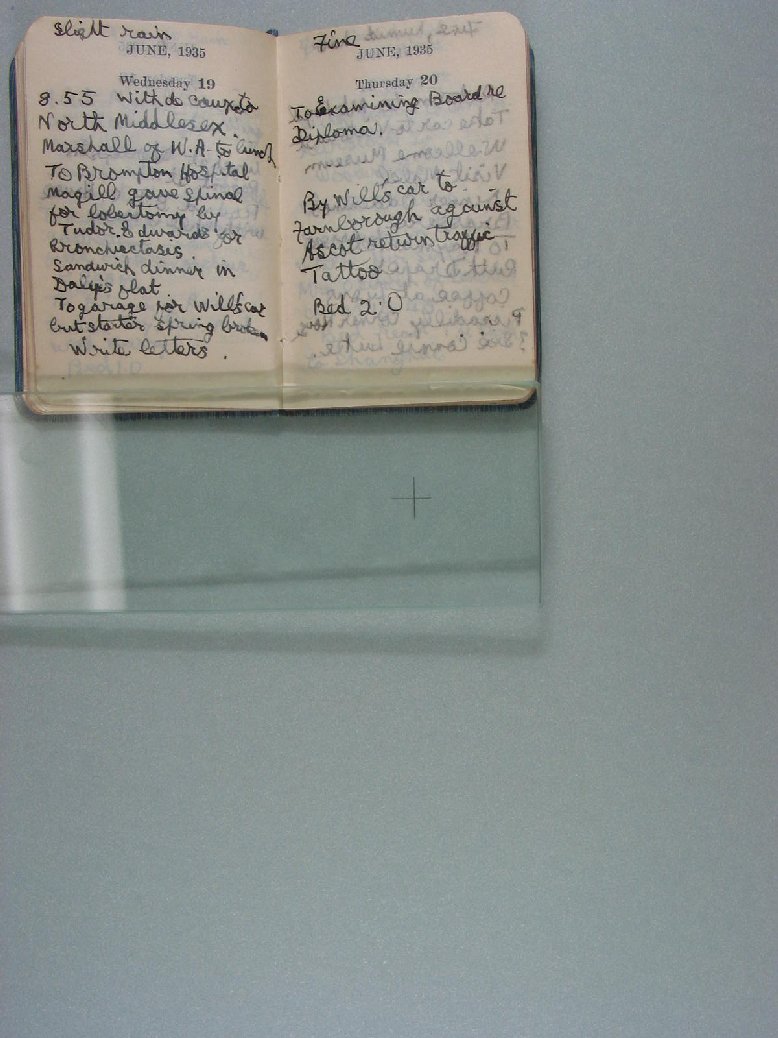 Slight rain
JUNE, 1935
Wednesday 19
8.55 With de Caux to
North Middlesex.
Marshall of W.A. to lunch
To Brompton Hospital
Magill gave spinal
for lobectomy by
Tudor Edwards for
Bronchiectasis
Sandwich dinner in
Daly's flat
To garage for Will's car
but starter spring broken
Write letters.
Fine
JUNE, 1935
Thursday 20
To Examining Board re
Diploma.
By Will's car to
Farnborough against
Ascot return traffic
Tattoo
Bed 2.0